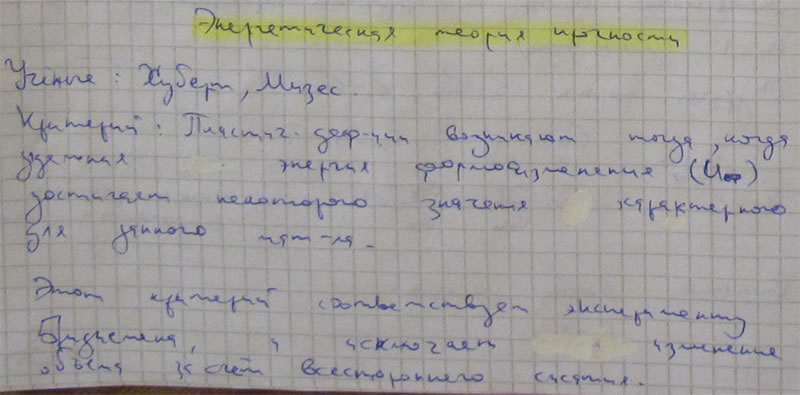 Энергетическая теория прочности
Учёные: Хуберт, Мизес.
Критерий: Пластич. деф-ции возникают тогда, когда
удельная энергия формоизменения (Uф)
достигает некоторого значения характерного
для данного мат-ла.
Этот критерий соответствует эксперименту
Бриджмена, и исключает изменение
объёма за счёт всестороннего сжатия.